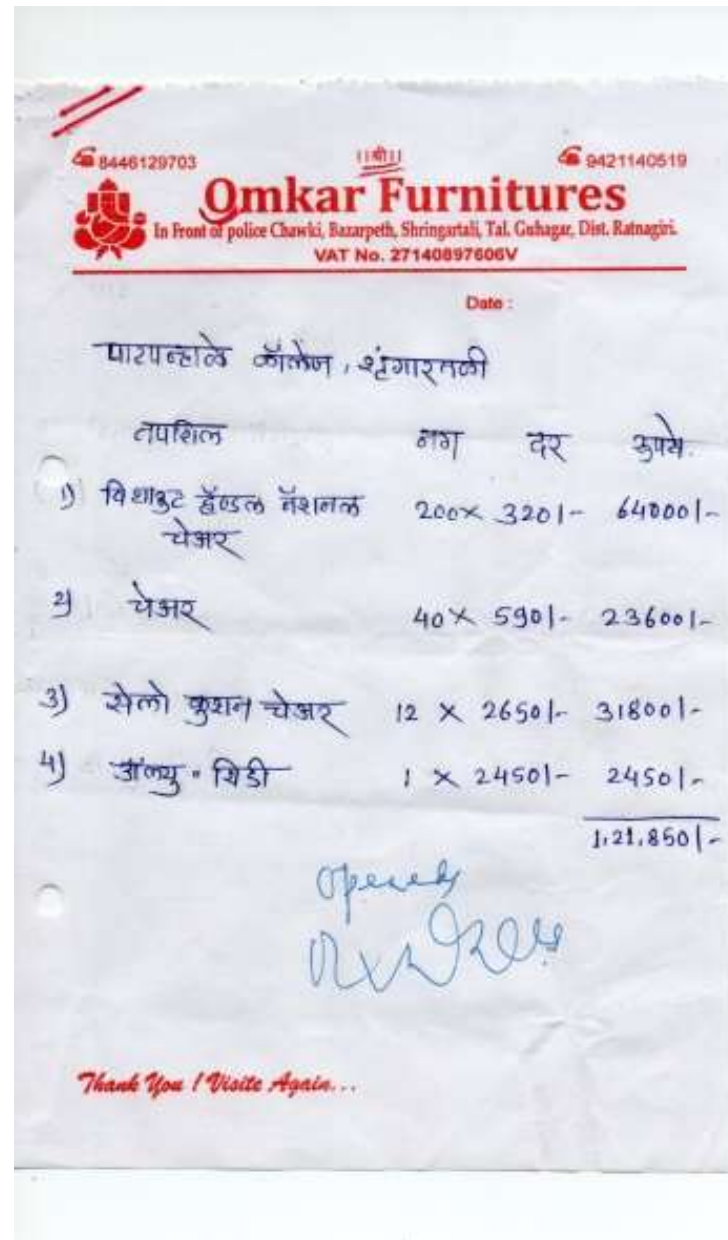 8446129703 ||श्री|| 9421140519
Omkar Furnitures
In Front of police Chawki, Bazarpeth, Shringartali, Tal. Guhagar, Dist. Ratnagiri.
VAT No. 27140897606V
Date :
पाटपन्हाळे कॉलेज, शृंगारतळी
तपशिल नग दर रुपये.
1) विथाउट हॅण्डल नॅशनल 200x 320/- 64000/-
चेअर
2) चेअर 40 x 590/- 23600/-
3) सेलो कुशन चेअर 12 x 2650/- 31800/-
4) अॅल्यु. शिडी 1 x 2450/- 2450/-
1,21,850/-
Thank You / Visite Again...